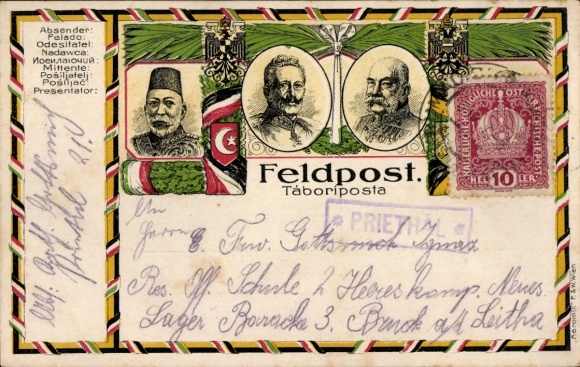 Absender:
Feladó:
Odesitatel:
Nadawca:
Mittente:
Pošiljatelj:
Pošiljač:
Presentator:
Feldpost.
Táboriposta
KAISERLICHE KÖNIGLICHE ÖSTERREICHISCHE POST
HELLER
10
* PRIETHAL *
An
Herrn E. Frw. Ignaz
Res. Off. Schule 2 Heereskamp. Neues
Lager Baracke 3. Bruck a/d Leitha
Priethal